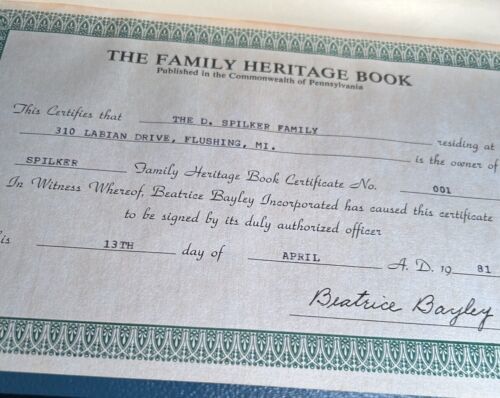 THE FAMILY HERITAGE BOOK
Published in the Commonwealth of Pennsylvania
This Certifies that THE D. SPILKER FAMILY residing at
310 LABIAN DRIVE, FLUSHING, MI. is the owner of
SPILKER Family Heritage Book Certificate No. 001
In Witness Whereof, Beatrice Bayley Incorporated has caused this certificate
to be signed by its duly authorized officer
is 13TH day of APRIL A. D. 19 81
Beatrice Bayley